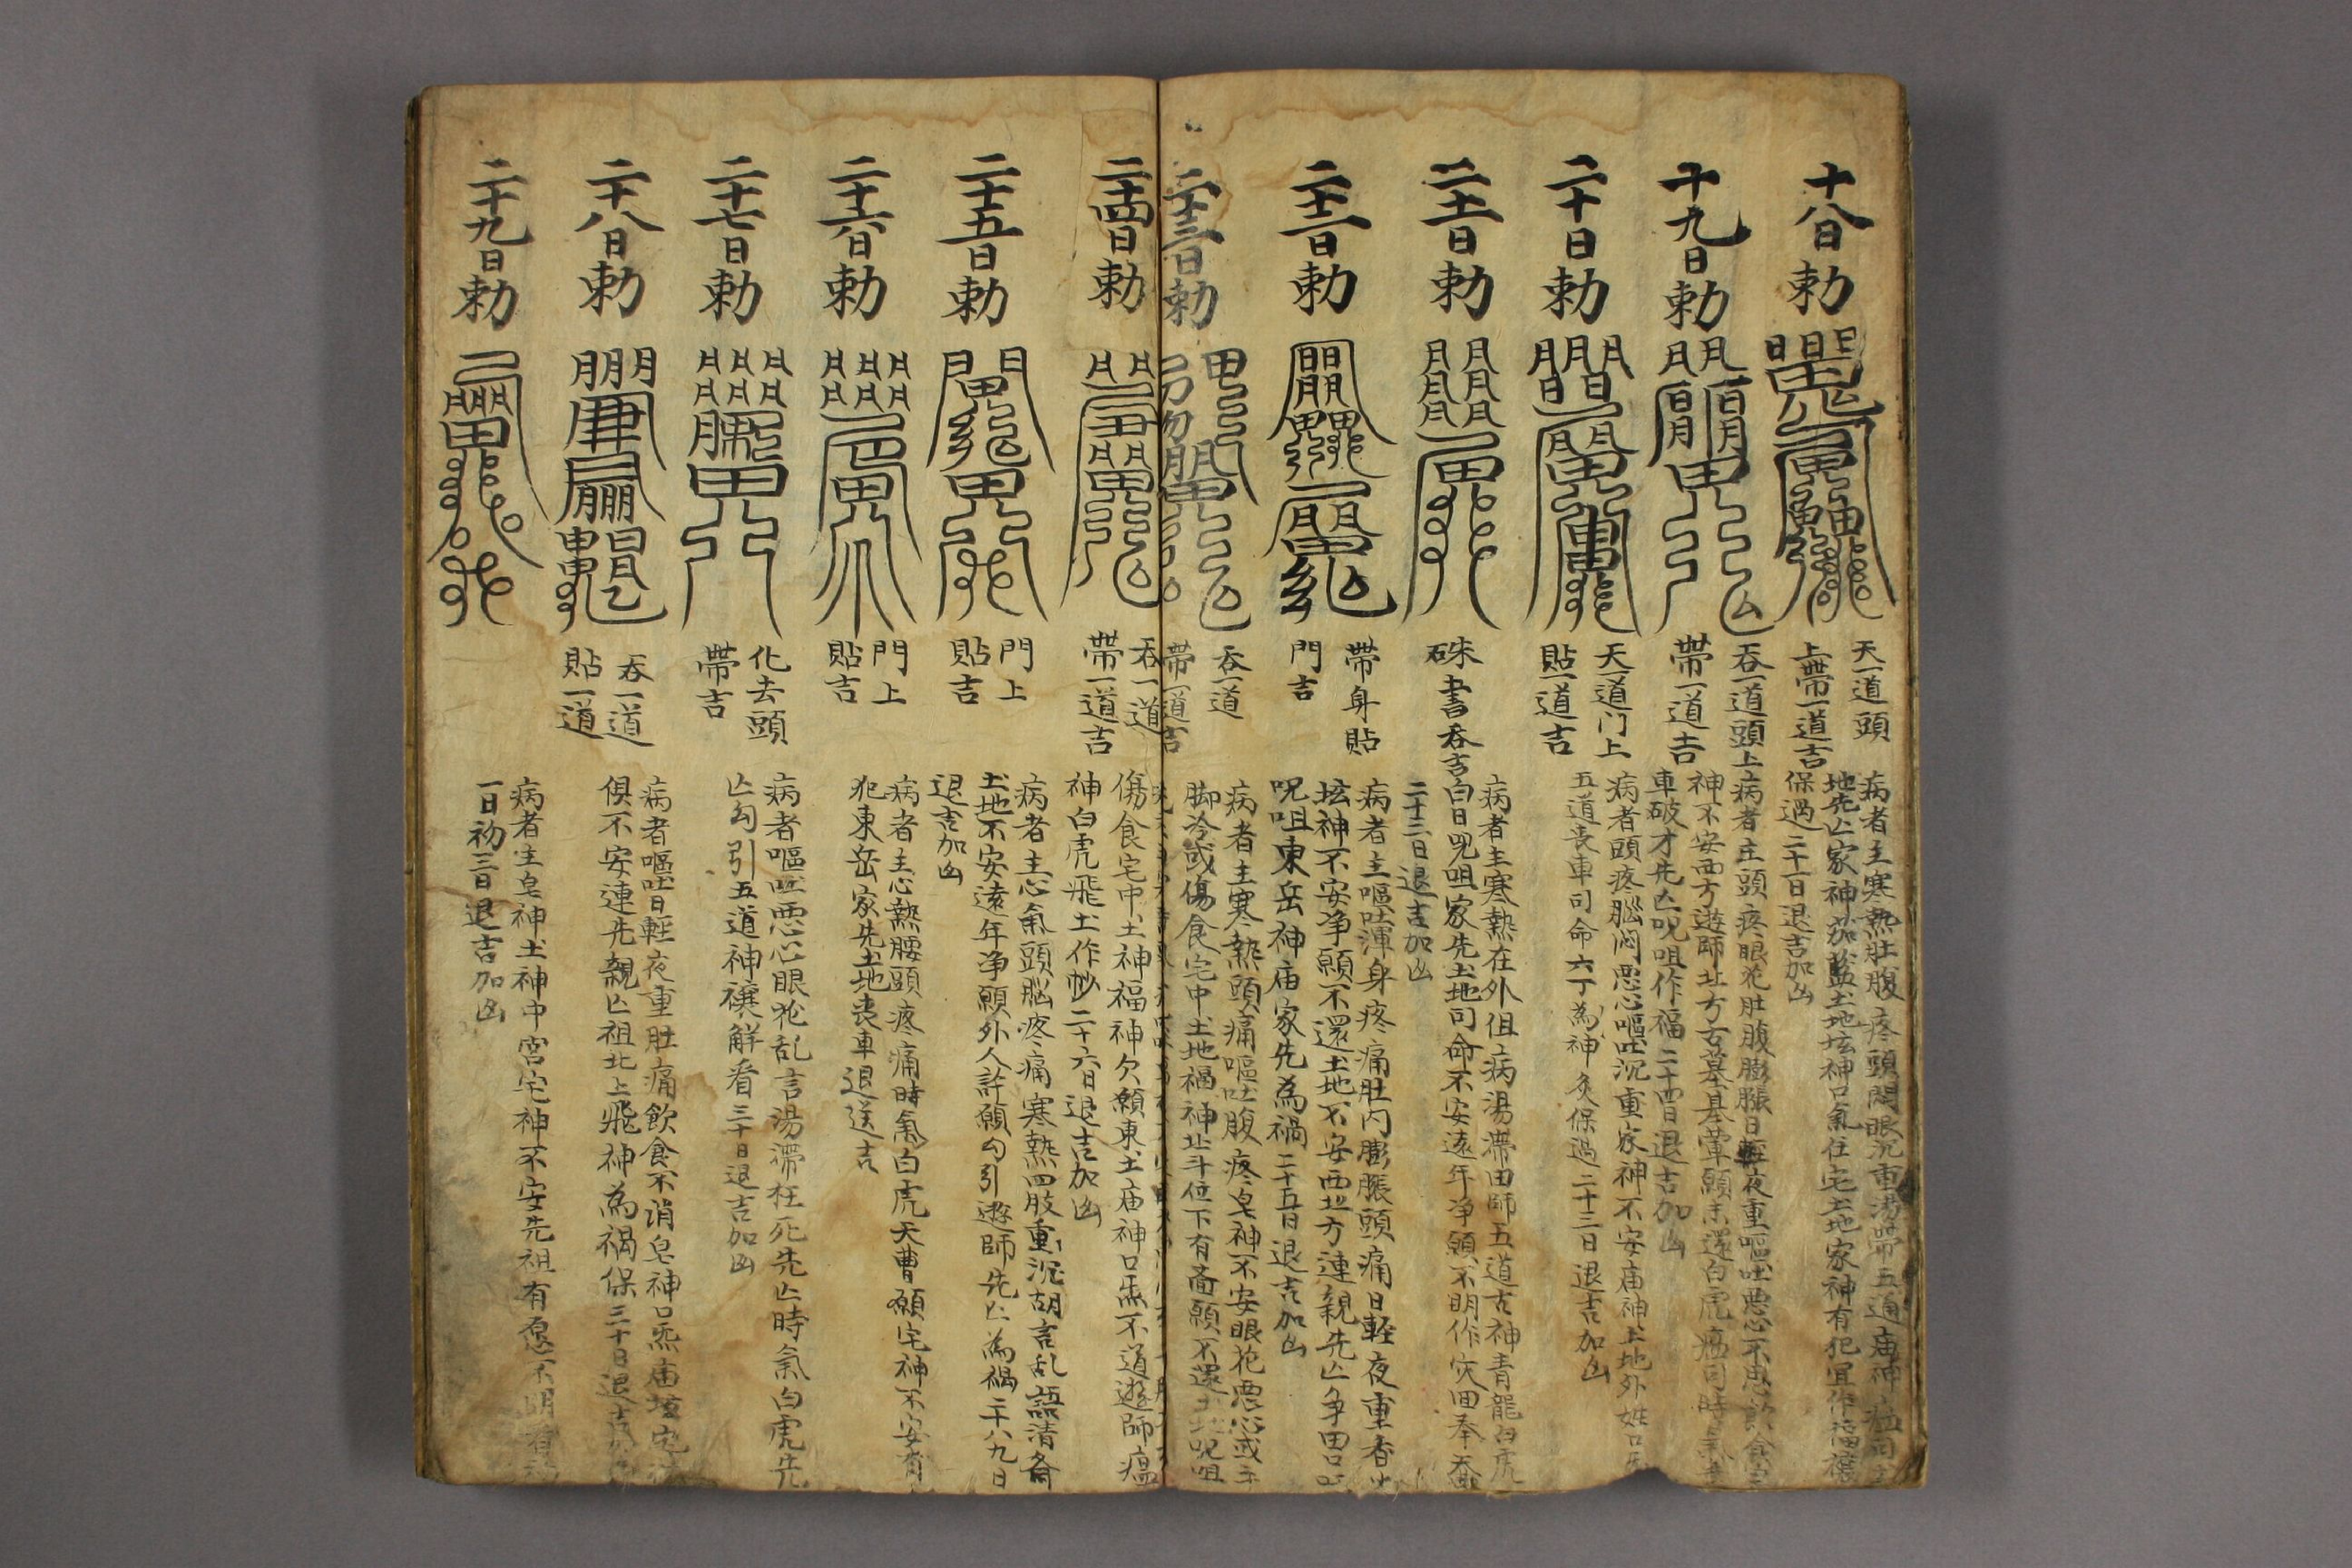 十八日勅
天一道頭
上帶一道吉
病者主寒熱肚腹疼頭悶眼沉重湯帶五道庙神
地先亡家神茄藍土地坛神口氣住宅土地家神有犯宜作福禳
保過二十一日退吉加凶
十九日勅
吞一道頭上
帶一道吉
病者主頭疼眼花肚腹膨脹日輕夜重嘔吐惡心不思飲食
神不安西方遊師北方古墓基葷願未還白虎瘟司時氣
車破才先亡呪咀作福二十四日退吉加凶
二十日勅
天一道门上
貼一道吉
病者頭疼腦悶惡心嘔吐沉重家神不安庙神土地外姓口
五道丧車司命六丁為神灸保過二十三日退吉加凶
二十一日勅
硃書吞吉
病者主寒熱在外伹病湯帶田師五道古神青龍白虎
白日呪咀家先土地司命不安遠年净願不明作灾田奉
二十三日退吉加凶
二十二日勅
帶身貼
門吉
病者主嘔吐渾身疼痛肚内膨脹頭痛日輕夜重香
坛神不安净願不還土地不安西北方連親先亡争田
呪咀東岳神庙家先為禍二十五日退吉加凶
二十三日勅
吞一道
帶一道吉
病者主寒熱頭痛嘔吐腹疼皂神不安眼花惡心或
脚冷或傷食宅中土地福神北斗位下有斋願不還土地呪咀
二十四日勅
吞一道
帶一道吉
傷食宅中土神福神欠願東土庙神口炁不道遊師瘟
神白虎飛土作吵二十六日退吉加凶
二十五日勅
門上
貼吉
病者主心氣頭脳疼痛寒熱四肢重沉胡言乱語清斋
土地不安遠年净願外人許願勾引遊師先亡為禍二十八九日
退吉加凶
二十六日勅
門上
貼吉
病者主心熱腰頭疼痛時氣白虎天曹願宅神不安有
犯東岳家先土地丧車退送吉
二十七日勅
化去頭
帶吉
病者嘔吐惡心眼花乱言湯滯枉死先亡時氣白虎先
亡勾引五道神禳解看三十日退吉加凶
二十八日勅
吞一道
貼一道
病者嘔吐日輕夜重肚痛飲食不消皂神口炁庙坛宅
俱不安連先親亡祖北上飛神為禍保三十日退吉
二十九日勅
病者主皂神土神中宫宅神不安先祖有愿不明
一日初三日退吉加凶